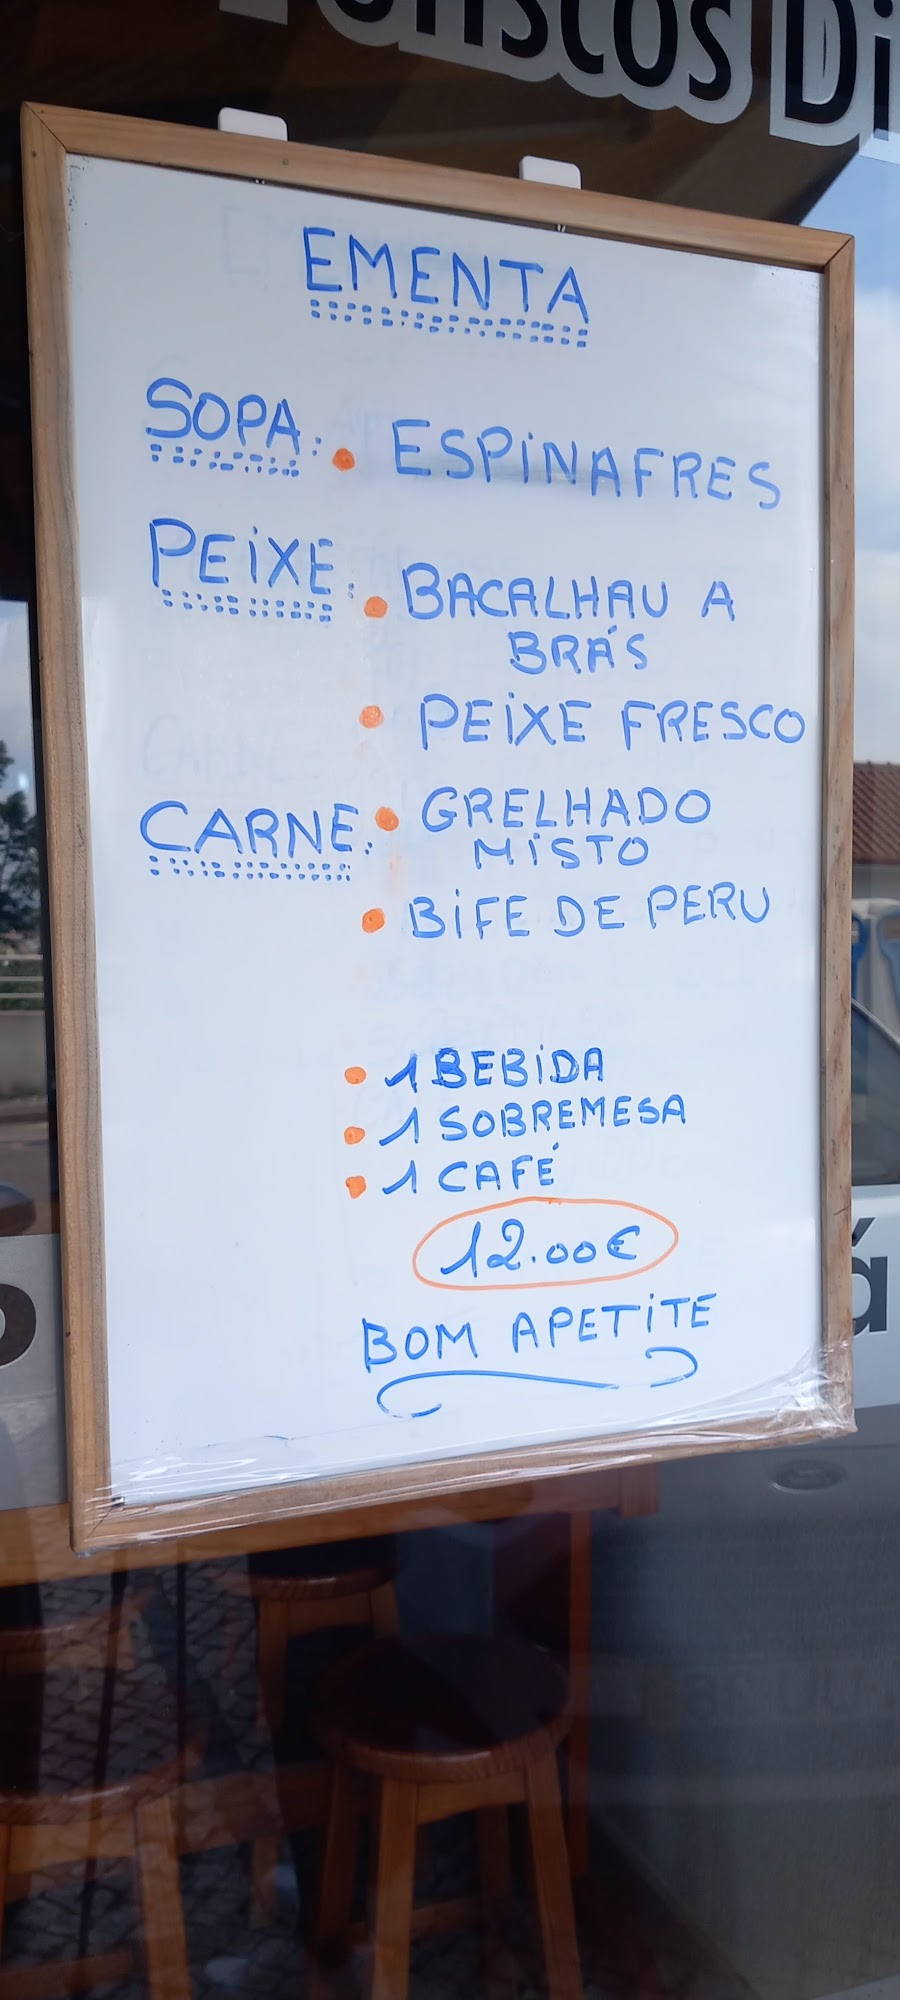 EMENTA
SOPA: • ESPINAFRES
PEIXE: • BACALHAU A
BRÁS
• PEIXE FRESCO
CARNE: • GRELHADO
MISTO
• BIFE DE PERU
• 1 BEBIDA
• 1 SOBREMESA
• 1 CAFÉ
12.00€
BOM APETITE